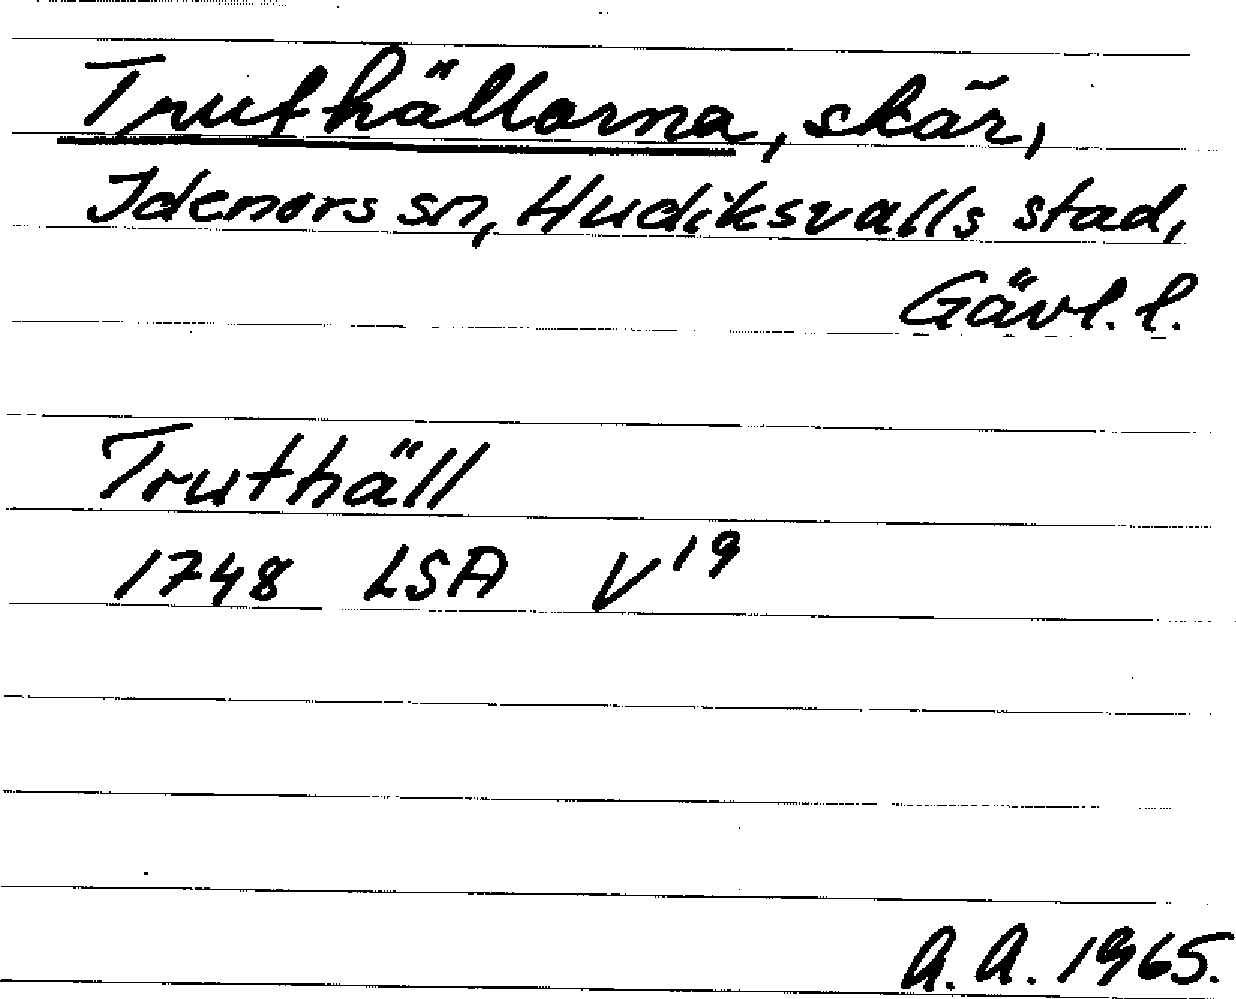 Truthällorna, skär,
Idenors sn, Hudiksvalls stad,
Gävl. l.
Truthäll
1748 LSA V¹⁹
A. A. 1965.